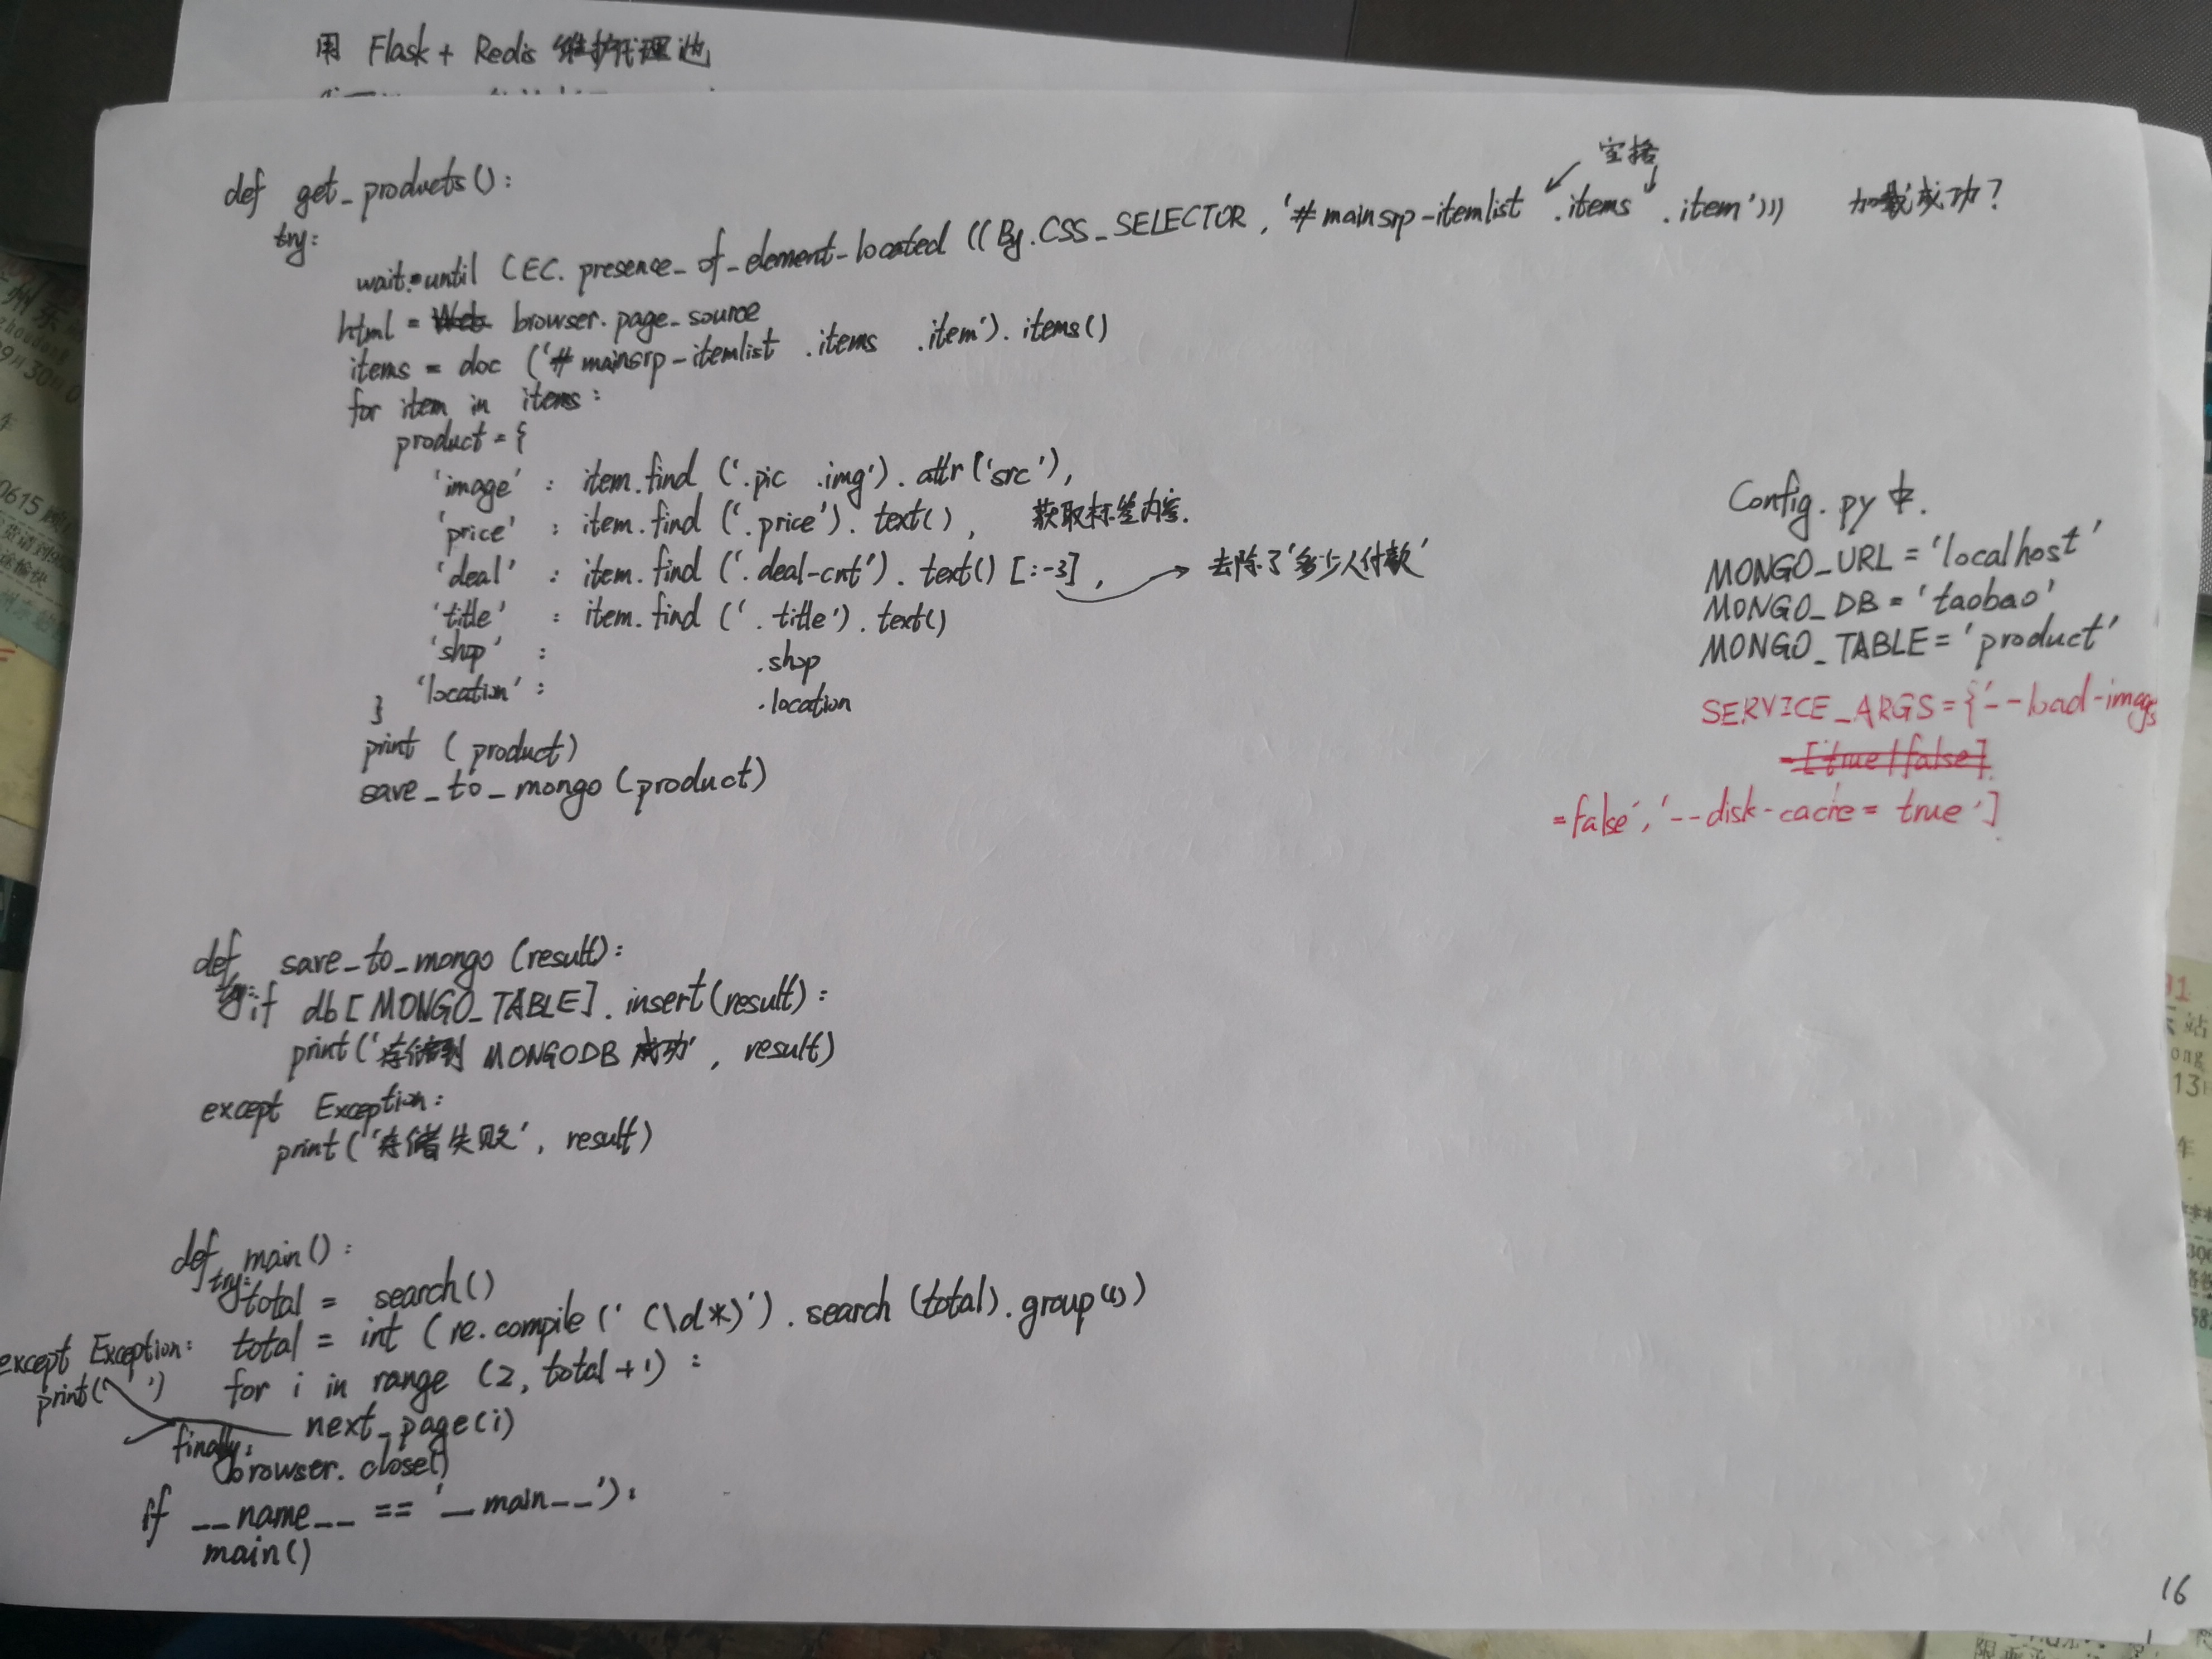 用 Flask + Redis 维护代理池
def get_products():
try:
wait.until (EC. presence_of_element_located ((By.CSS_SELECTOR, '#mainsrp-itemlist .items .item')))
空格
加载成功?
html = browser.page_source
items = doc ('#mainsrp-itemlist .items .item').items()
for item in items:
product = {
'image' : item.find ('.pic .img').attr('src'),
'price' : item.find ('.price').text(), 获取标签内容.
'deal' : item.find ('.deal-cnt').text() [:-3], → 去除了'多少人付款'
'title' : item.find ('.title').text()
'shop' : .shop
'location' : .location
}
print (product)
save_to_mongo (product)
Config.py 中.
MONGO_URL = 'localhost'
MONGO_DB = 'taobao'
MONGO_TABLE = 'product'
SERVICE_ARGS = {'--load-images
-[true/false]
=false', '--disk-cache = true']
def save_to_mongo (result):
try:
if db[MONGO_TABLE].insert(result):
print('存储到 MONGODB 成功', result)
except Exception:
print('存储失败', result)
def main():
try:
total = search()
total = int (re.compile('(\d*)').search (total).group(1))
for i in range (2, total+1) :
next_page(i)
except Exception:
print(' ')
finally:
browser.close()
if __name__ == '__main__'):
main()
16
91
站
13